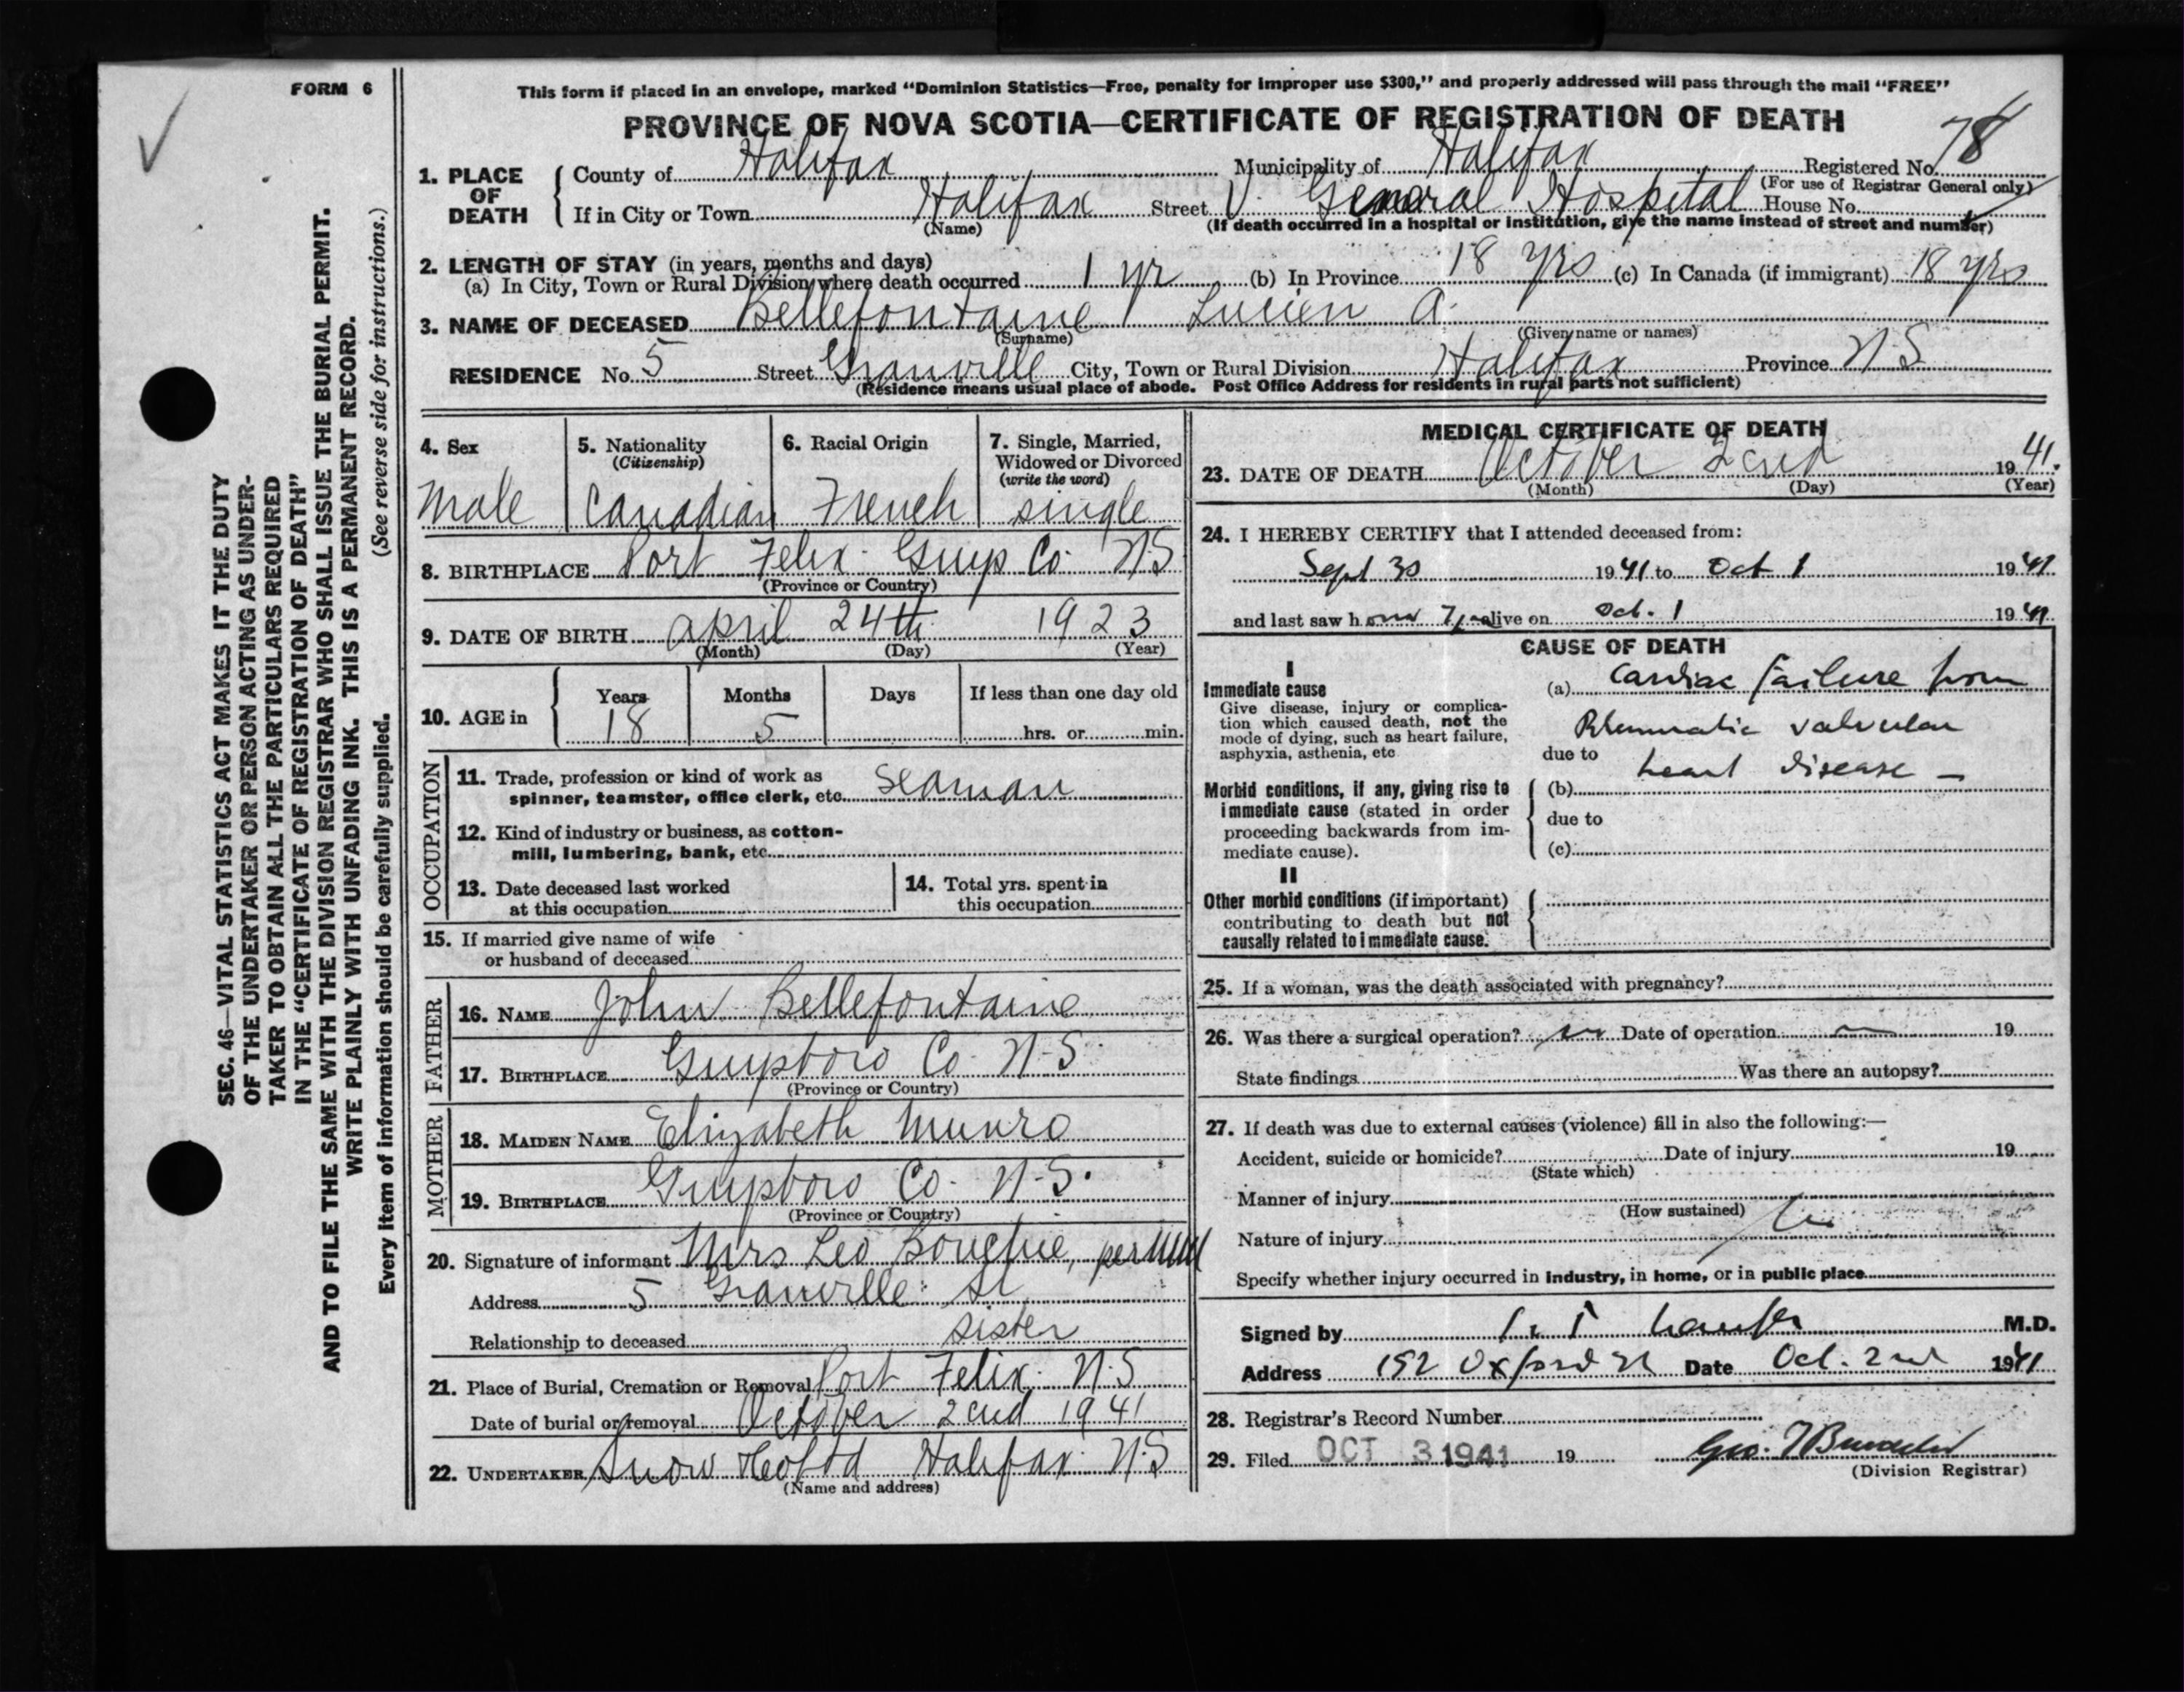 FORM 6
This form if placed in an envelope, marked "Dominion Statistics—Free, penalty for improper use $300," and properly addressed will pass through the mail "FREE"
PROVINCE OF NOVA SCOTIA—CERTIFICATE OF REGISTRATION OF DEATH
SEC. 46—VITAL STATISTICS ACT MAKES IT THE DUTY
OF THE UNDERTAKER OR PERSON ACTING AS UNDER-
TAKER TO OBTAIN ALL THE PARTICULARS REQUIRED
IN THE "CERTIFICATE OF REGISTRATION OF DEATH"
AND TO FILE THE SAME WITH THE DIVISION REGISTRAR WHO SHALL ISSUE THE BURIAL PERMIT.
WRITE PLAINLY WITH UNFADING INK. THIS IS A PERMANENT RECORD.
Every item of information should be carefully supplied. (See reverse side for instructions.)
1. PLACE OF DEATH
County of Halifax Municipality of Halifax Registered No. 78
(For use of Registrar General only)
If in City or Town Halifax Street V. General Hospital House No.
(Name) (If death occurred in a hospital or institution, give the name instead of street and number)
2. LENGTH OF STAY (in years, months and days)
(a) In City, Town or Rural Division where death occurred 1 yr (b) In Province 18 yrs (c) In Canada (if immigrant) 18 yrs
3. NAME OF DECEASED Bellefontaine Lucien A.
(Surname) (Given name or names)
RESIDENCE No. 5 Street Granville City, Town or Rural Division Halifax Province N S
(Residence means usual place of abode. Post Office Address for residents in rural parts not sufficient)
4. Sex
Male
5. Nationality
(Citizenship)
Canadian
6. Racial Origin
French
7. Single, Married,
Widowed or Divorced
(write the word)
single
8. BIRTHPLACE Port Felix Guys Co. N.S
(Province or Country)
9. DATE OF BIRTH April 24th 1923
(Month) (Day) (Year)
10. AGE in
Years 18
Months 5
Days
If less than one day old
hrs. or min.
OCCUPATION
11. Trade, profession or kind of work as
spinner, teamster, office clerk, etc. Seaman
12. Kind of industry or business, as cotton-
mill, lumbering, bank, etc.
13. Date deceased last worked
at this occupation
14. Total yrs. spent in
this occupation
15. If married give name of wife
or husband of deceased
FATHER
16. NAME John Bellefontaine
17. BIRTHPLACE Guysboro Co N-S
(Province or Country)
MOTHER
18. MAIDEN NAME Elizabeth Munro
19. BIRTHPLACE Guysboro Co. N-S.
(Province or Country)
20. Signature of informant Mrs Leo Bouchie, per
Address 5 Granville St
Relationship to deceased sister
21. Place of Burial, Cremation or Removal Port Felix N.S
Date of burial or removal October 2cnd 1941
22. UNDERTAKER Snow Halifax N.S
(Name and address)
MEDICAL CERTIFICATE OF DEATH
23. DATE OF DEATH October 2cnd 1941.
(Month) (Day) (Year)
24. I HEREBY CERTIFY that I attended deceased from:
Sept 30 1941 to Oct 1 1941
and last saw h alive on Oct. 1 1941
CAUSE OF DEATH
I
Immediate cause
Give disease, injury or complica-
tion which caused death, not the
mode of dying, such as heart failure,
asphyxia, asthenia, etc
(a) Cardiac failure from
Rheumatic valvular
due to heart disease —
Morbid conditions, if any, giving rise to
immediate cause (stated in order
proceeding backwards from im-
mediate cause).
(b)
due to
(c)
II
Other morbid conditions (if important)
contributing to death but not
causally related to immediate cause.
25. If a woman, was the death associated with pregnancy?
26. Was there a surgical operation? Date of operation 19
State findings Was there an autopsy?
27. If death was due to external causes (violence) fill in also the following:—
Accident, suicide or homicide? Date of injury 19
(State which)
Manner of injury
(How sustained)
Nature of injury
Specify whether injury occurred in industry, in home, or in public place
Signed by M.D.
Address 192 Oxford St Date Oct. 2nd 1941
28. Registrar's Record Number
29. Filed OCT 3 1941 19 Geo.
(Division Registrar)